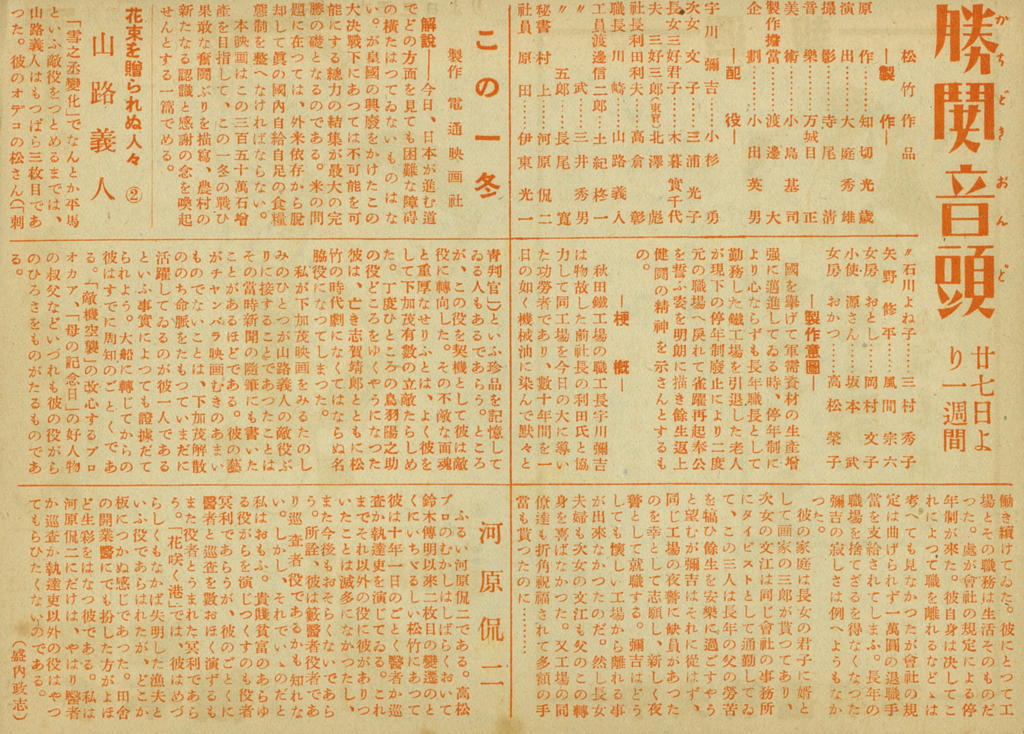 勝鬨音頭
かちどきおんど
廿七日より一週間
松竹作品
―製作―
原作……知切光歳
演出……大庭秀雄
撮影……寺尾清
音樂……万城目正
美術……小島基司
製作擔當……渡邊大
企劃……小出英男
―配役―
宇川彌吉……小杉勇
次女文子……三浦光子
長女三好君子……木暮實千代
夫三好三郎(東野)……北澤彪
社長利田利夫……高倉彰
職長川崎……山路義人
工員渡邊信二郎……土紀柊一
〃武……三井秀男
〃五郎……長尾寛
秘書村上……河原侃二
社員原田……伊東光一
〃石川よね子……三村秀子
矢野修平……風間宗六
女房おとし……岡村文子
小使源さん……坂本武
女房おかつ……高松榮子
―製作意圖―
國を擧げて軍需資材の生產增
強に邁進してゐる時、停年制に
より心ならずも長年職長として
勤務した鐵工場を引退した老人
が現下の停年制廢止により二度
元の職場へ戾れて雀躍再起奉公
を誓ふ姿を明朗に描き餘生返上
健鬪の精神を示さんとするも
の。
―梗概―
秋田鐵工場の職工長宇川彌吉
は物故した前社長の利田氏と協
力して同工場を今日の大に導い
た功勞者であり、數十年間を一
日の如く機械油に染んで默々と
働き續けてゐた。彼にとつて工
場とその職務は生活そのものだ
つた。處が會社の規定による停
年制が來た。彼自身は決して
れによつて職を離れるなどとは
考へても見なかつたが會社の規
定は曲げられず一萬圓の退職手
當を支給されてしまふ。長年の
職場を捨てざるを得なくなつた
彌吉の寂しさは例へようもなか
つた。
彼の家庭は長女の君子に婿と
して画家の三郎が貰つてあり、
次女の文江は同じ會社の事務所
にタイピストとして通勤してゐ
て、この三人は長年の父の勞苦
を犒ひ餘生を安樂に過ごすやう
と望むが彌吉はそれに從はず、
同じ工場の夜警に缺員があつた
のを幸として志願し、新しく夜
警として就職する。彌吉はどう
しても懷しい工場から離れる事
が出來なかつたのだ。然し長女
夫婦も次女の文江も父のこの轉
身を喜ばなかつた。又工場の同
僚達も折角祝福されて多額の手
當も貰つたのに……
この一冬
製作 電通映画社
解說――今日、日本が進む道
でどの方面を見ても困難な障碍
の橫たはつてゐないものはな
い。が皇國の興廢をかけたこの
大決戰下にあつては不可能を可
能にする總力の結集が最大の完
勝の礎となるのである。米の問
題に在つては、外米依存から脫
却して眞の國內自給自足の食糧
態制を整へなければならない。
本映画はこの三百五十萬石增
產を目指して、この一冬の戰ひ
果敢な奮鬪ぶりを描寫、農村の
新たなる認識と感謝の念を喚起
せんとする一篇でゐる。
花束を贈られぬ人々 ②
山路義人
「雪之丞變化」でなんとか平馬
といふ敵役をつとめるまでは、
山路義人はもつぱら三枚目であ
つた。彼のオデコの松さん(「刺
靑判官」)といふ珍品を記憶して
ゐる人もあるであらう。ところ
が、この役を契機として彼は敵
役に轉向した。その不敵な面魂
と重厚なせりふとは、よく彼を
して下加茂有數の立敵たらしめ
た。丁度ひところの鳥羽陽之助
の役どころをゆくやうになつた
彼は、亡き志賀靖郞とともに松
竹の時代劇になくてはならぬ名
脇役になつてしまつた。
私が下加茂映画をみるたのし
みのひとつが山路義人の敵役ぶ
りに接することであつたことは
その當時新聞の隨筆にも書いた
ことがあるほどである。彼の藝
がチャンバラ映画むきのあまい
ものでないことは、下加茂解散
ののち命脈をたもつていまだに
活躍してゐるのが彼一人である
といふ事實によつても證據だて
られよう。大船に轉じてからの
彼はすでに周知のごとくであ
る。「敵機空襲」の改心するブロ
オカア、「母の記念日」の好人物
の叔父などいづれも彼の役がら
のひろさをものがたるものであ
る。
河原侃二
ふるい河原侃二である。高松
プロのむかしはしばらくおいて
鈴木傳明以來二枚目の變遷のと
くにいちゞるしい松竹にあつて
彼は十年一日のごとく醫者か巡
査か執達吏を演じてゐる。これ
までそれ以外の役に彼がありつ
いたことは滅多になかつたし、
また今後もおそらくないであら
う。所詮、彼は籔醫者役者であ
り巡査者役であるかも知れな
い。しかし、それでいゝのだと
私はおもふ。貴賤貧富のあらゆ
る役がらを演じつくすのも役者
冥利であらうが、彼のごとくに
醫者と巡査を數おほく演ずるも
また役者とうまれた冥利であら
う。「花咲く港」では、彼はめづ
らしくもなかば失明した漁夫と
いふ役であらはれたが、どこか
板につかぬ感じであつた。田舍
の開業醫にでも扮した方がよほ
ど生彩をはなつ彼である。私は
河原侃二にだけは、やはり醫者
か巡査か執達吏以外の役はやつ
てもらひたくないのである。
(盛內政志)